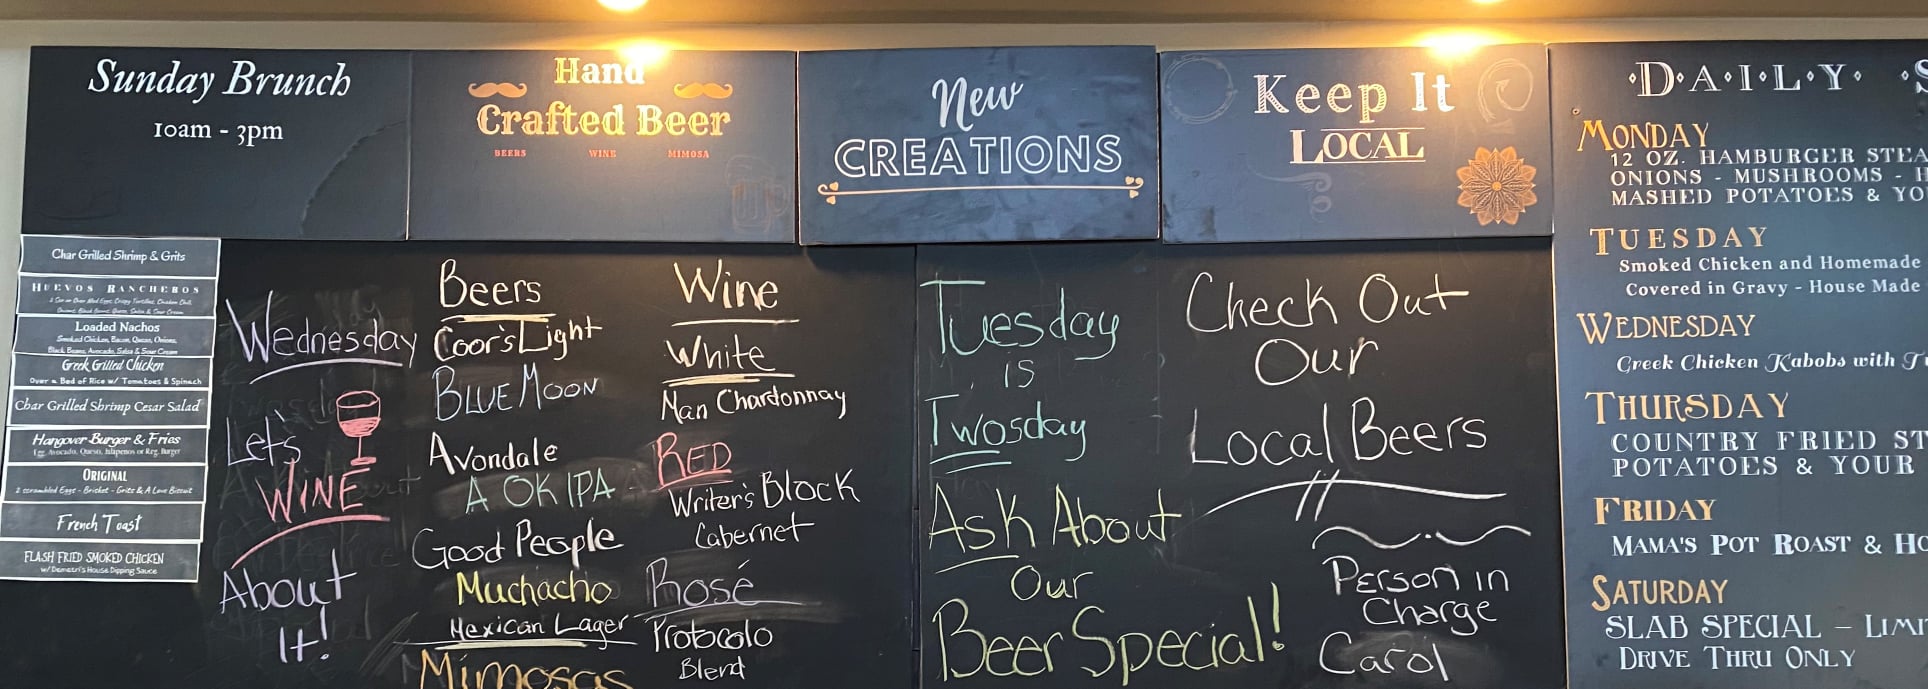 Sunday Brunch
10am - 3pm
Char Grilled Shrimp & Grits
HUEVOS RANCHEROS
Loaded Nachos
Smoked Chicken, Bacon, Queso, Onions,
Black Beans, Avocado, Salsa & Sour Cream
Greek Grilled Chicken
Over a Bed of Rice w/ Tomatoes & Spinach
Char Grilled Shrimp Cesar Salad
Hangover Burger & Fries
Egg, Avocado, Queso, Jalapenos or Reg. Burger
ORIGINAL
2 scrambled Eggs - Brisket - Grits & A Love Biscuit
French Toast
FLASH FRIED SMOKED CHICKEN
w/ Demetri's House Dipping Sauce
Wednesday
Let's
WINE
About
It!
Hand
Crafted Beer
BEERS WINE MIMOSA
Beers
Coor's Light
BLUE MOON
Avondale
A OK IPA
Good People
Muchacho
Mexican Lager
Mimosas
Wine
White
Man Chardonnay
RED
Writer's Block
Cabernet
Rosé
Protocolo
Blend
New
CREATIONS
Tuesday
is
Twosday
Ask About
Our
Beer Special!
Keep It
LOCAL
Check Out
Our
Local Beers
Person in
Charge
Carol
DAILY S
MONDAY
12 OZ. HAMBURGER STEA
ONIONS - MUSHROOMS - H
MASHED POTATOES & YO
TUESDAY
Smoked Chicken and Homemade
Covered in Gravy - House Made
WEDNESDAY
Greek Chicken Kabobs with
THURSDAY
COUNTRY FRIED ST
POTATOES & YOUR
FRIDAY
MAMA'S POT ROAST & HO
SATURDAY
SLAB SPECIAL - LIMI
DRIVE THRU ONLY